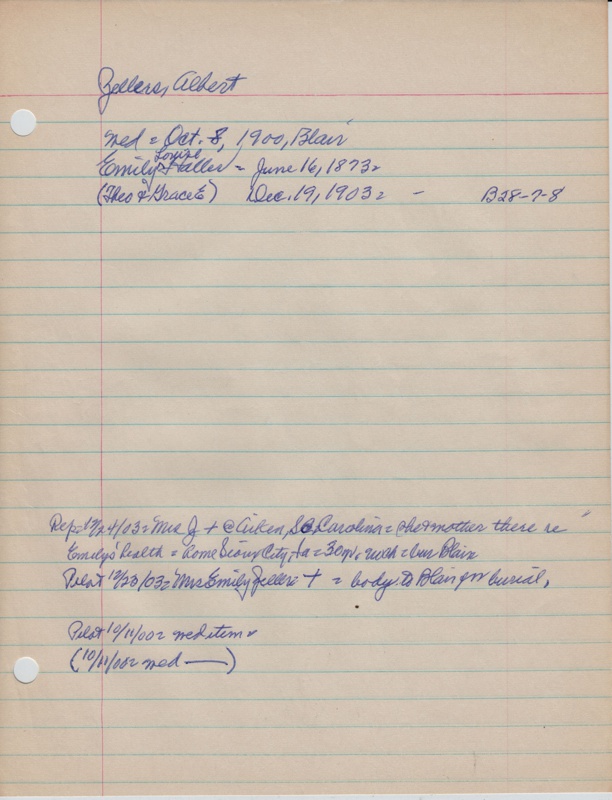 Zellers, Albert
Wed = Oct. 8, 1900, Blair
Louise
Emily Haller = June 16, 1873=
(Theo & Grace E) Dec. 19, 1903= - B28-7-8
Rep= 12/24/03= Mrs Z + @ Aiken, So Carolina = she & mother there re
Emily's health = home Sioux City, Ia = 30 yr. = bur Blair
Pilot 12/23/03= Mrs Emily Zellers + = body to Blair for burial.
Pilot 10/11/00= wed item=
(10/11/00= wed —)